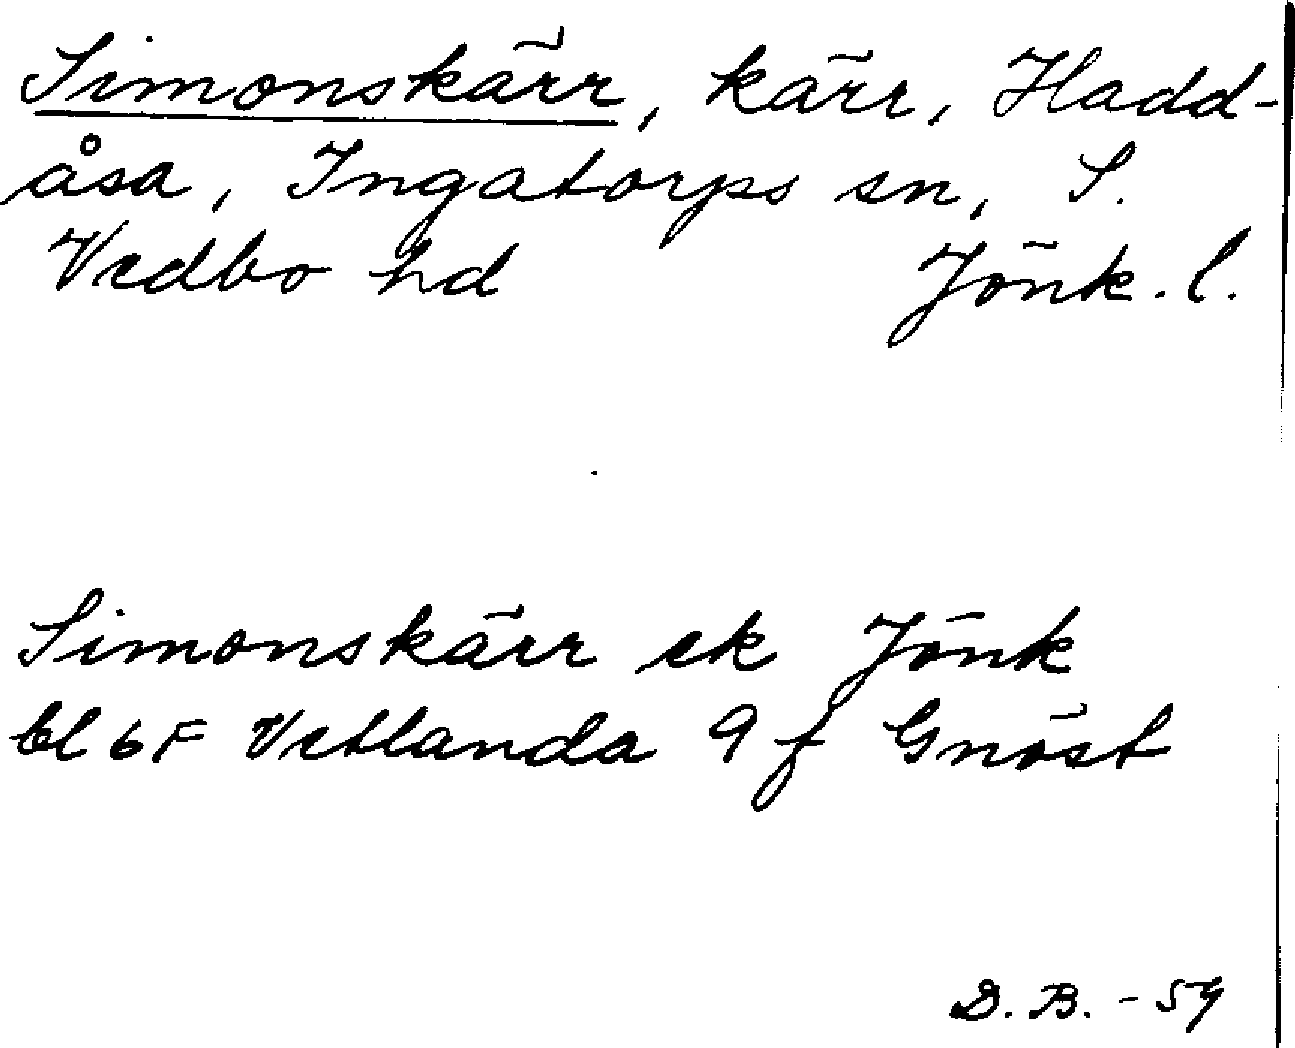 Simonskärr, kärr, Hadd-
åsa, Ingatorps sn, S.
Vedbo hd Jönk. l.
Simonskärr ek Jönk
bl 6F Vetlanda 9 f Gnöst
D. B. - 59